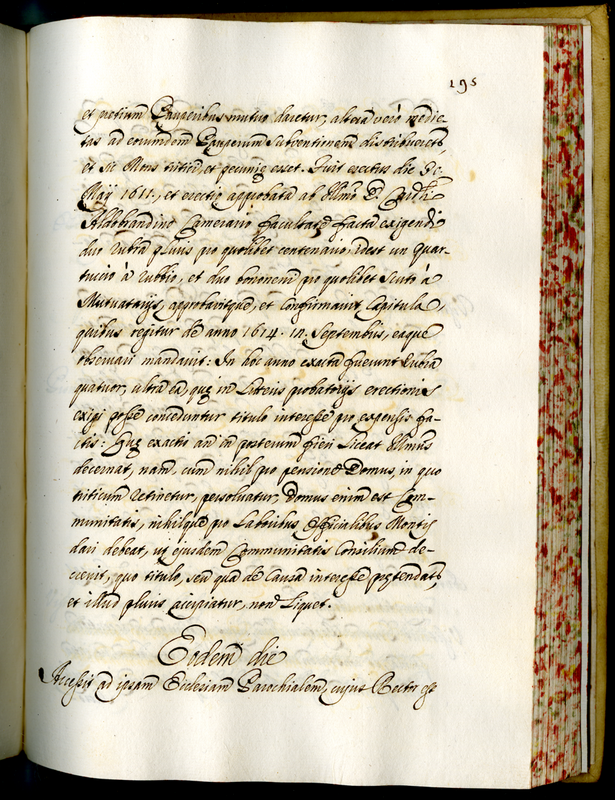 195
et pretium Pauperibus mutuo daretur, altera vero medie-
tas ad eorumdem Pauperum Subventionem distribueretr,
et sic Mons tritici, et pecunię esset. Fuit erectus die
Maij 1611, et erectio approbata ab Illmo D.
Aldobrandino Camerario facultate facta exigendi
duo rubra pluris pro quolibet centenario, idest un quar-
tuccio à rubbio, et duo bononem pro quolibet scuto à
Mutuatarijs, approbavitque, et Confirmavit Capitula,
quibus regitur de anno 1614. 14. Septembris, eaque
observari mandavit: In hoc anno exacta fuerunt rubra
quatuor, ultra ea quę in Literis probatorijs erectionis
exigi posse conceduntur titulo interesse pro expensis fa-
ctis: Quę exactio an in posterum fieri liceat Illmus
decernat, nam, cum nihil pro pensione Domus, in quo
triticum retinetur, persolvatur, Domus enim est Com-
munitatis, nihilque pro Laboribus Officialibus Montis
dari debeat, ut ejusdem Communitatis Consilium de-
crevit, quo titulo, seu qua de Causa interesse prętendatr,
et illud pluris accipiatur, non Liquet.
Eodem die
Accessit ad ipsam Ecclesiam Parochialem, cujus Rector est